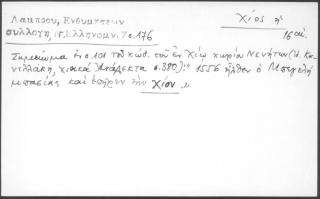 Λάμπρου, Ενθυμήσεων
συλλογή, ν. Ελληνομν. 7 σ. 176
Χίος ή
16 αι.
Σημείωμα εν σ 101 του κώδ. του εν Χίω χωρίου Νενήτων (Κ. Κα-
νελλάκη, χιακά Ανάλεκτα σ. 380): " 1556 ήλθεν ο
και επήρεν την Χίον "